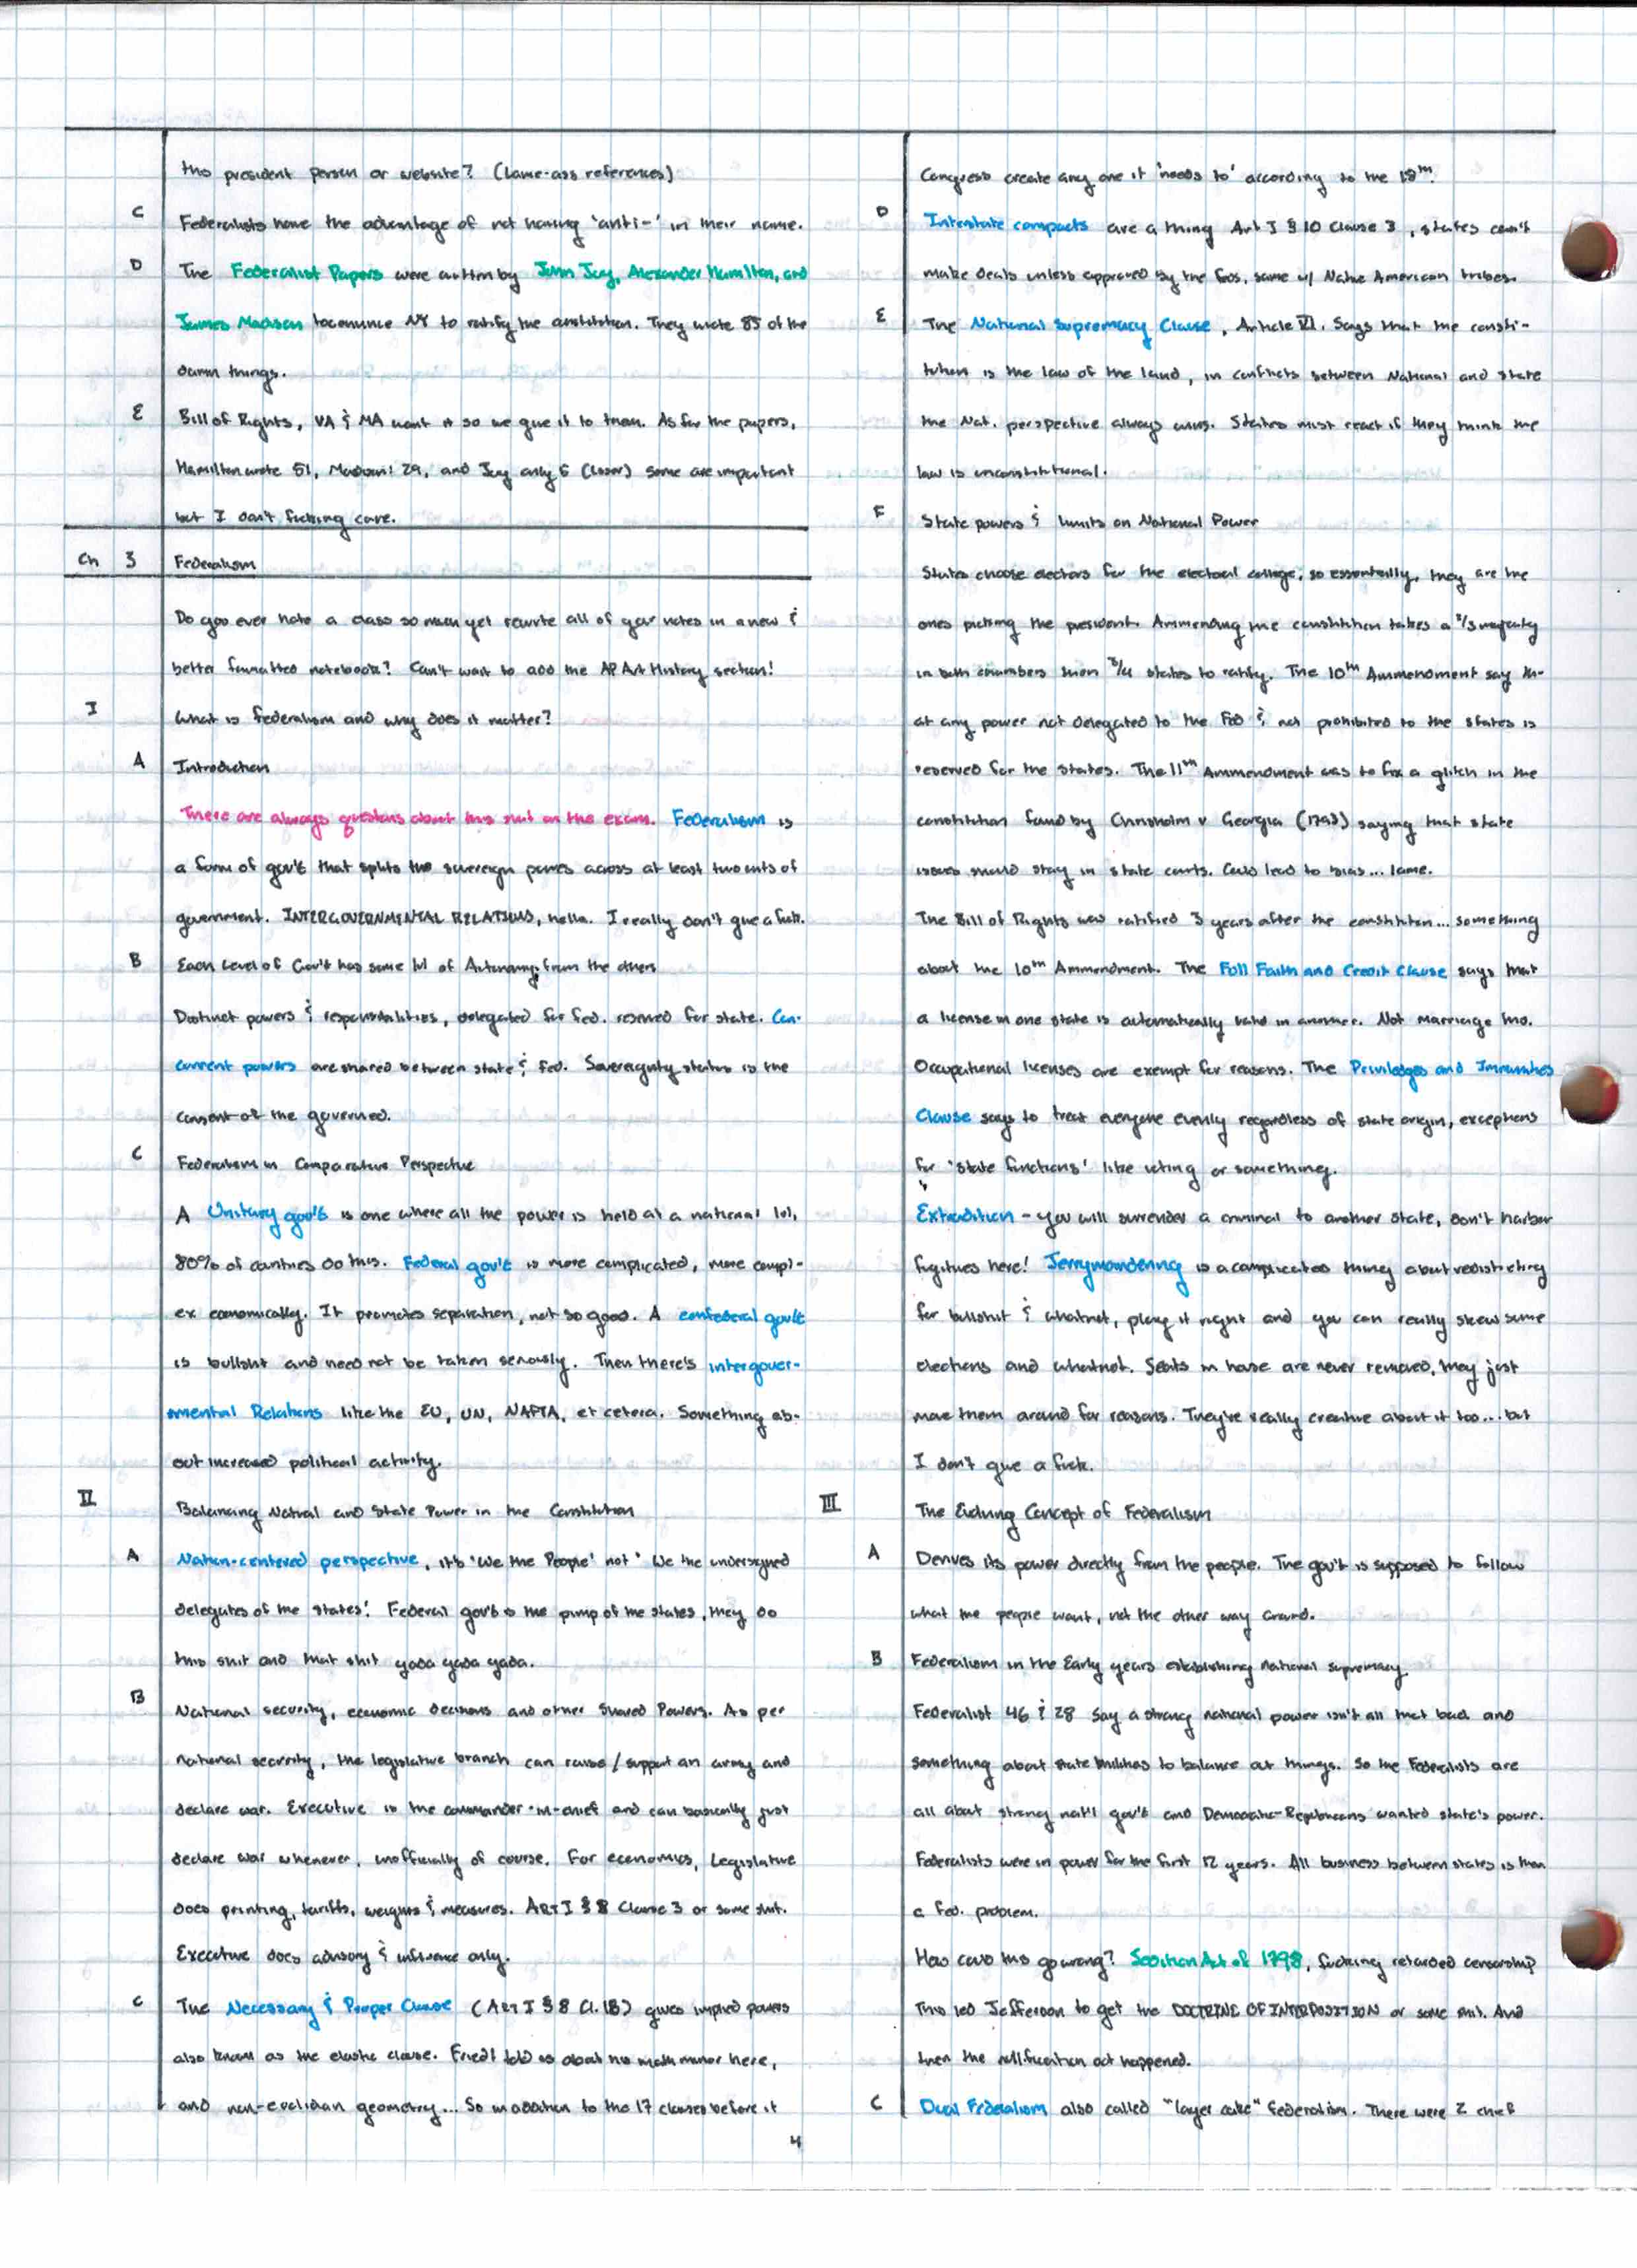 this president person or website? (Lame-ass references)
C Federalists have the advantage of not having 'anti-' in their name.
D The Federalist Papers were written by John Jay, Alexander Hamilton, and
James Madison to convince NY to ratify the constitution. They wrote 85 of the
damn things.
E Bill of Rights, VA & MA want it so we give it to them. As for the papers,
Hamilton wrote 51, Madison: 29, and Jay only 5 (loser) some are important
but I don't fucking care.
Ch 3 Federalism
Do you ever hate a class so much yet rewrite all of your notes in a new &
better formatted notebook? Can't wait to add the AP Art History section!
I What is federalism and why does it matter?
A Introduction
There are always questions about this shit on the exam. Federalism is
a form of gov't that splits the sovereign powers across at least two units of
government. INTERGOVERNMENTAL RELATIONS, hella. I really don't give a fuck.
B Each Level of Gov't has some lvl of Autonomy from the others
Distinct powers & responsibilities, delegated for fed. reserved for state. Con-
current powers are shared between state & fed. Sovereignty status is the
consent of the governed.
C Federalism in Comparative Perspective
A Unitary gov't is one where all the power is held at a national lvl,
80% of countries do this. Federal gov't is more complicated, more compl-
ex economically. It promotes separation, not so good. A confederal gov't
is bullshit and need not be taken seriously. Then there's intergover-
nmental Relations like the EU, UN, NAFTA, et cetera. Something ab-
out increased political activity.
II Balancing National and State Power in the Constitution
A Nation-centered perspective, it's 'We the People' not 'We the undersigned
delegates of the states'. Federal gov't is the pimp of the states, they do
this shit and that shit yada yada yada.
B National security, economic decisions and other Shared Powers. As per
national security, the legislative branch can raise/support an army and
declare war. Executive is the commander-in-chief and can basically just
declare war whenever, unofficially of course. For economics, Legislative
does printing, tariffs, weights & measures. ART I § 8 Clause 3 or some shit.
Executive does advisory & influence only.
C The Necessary & Proper Clause (ART I § 8 Cl. 18) gives implied powers
also known as the elastic clause. Friedl told us about his math minor here,
and non-euclidian geometry... So in addition to the 17 clauses before it
Congress create any one it 'needs to' according to the 18th.
D Interstate compacts are a thing Art I § 10 Clause 3, states can't
make deals unless approved by the feds, same w/ Native American tribes.
E The National Supremacy Clause, Article VI. Says that the consti-
tution is the law of the land, in conflicts between National and state
the Nat. perspective always wins. States must react if they think the
law is unconstitutional.
F State powers & limits on National Power
States choose electors for the electoral college, so essentailly, they are the
ones picking the president. Ammending the constitution takes a 2/3 majority
in both chambers then 3/4 states to ratify. The 10th Ammendment say th-
at any power not delegated to the Fed & not prohibited to the states is
reserved for the states. The 11th Ammendment was to fix a glitch in the
constitution found by Chisholm v Georgia (1793) saying that state
issues should stay in state courts. Could lead to bias... lame.
The Bill of Rights was ratified 3 years after the constitution... something
about the 10th Ammendment. The Full Faith and Credit Clause says that
a license in one state is automatically valid in another. Not marriage tho.
Occupational licenses are exempt for reasons. The Priviledges and Immunities
Clause says to treat everyone evenly regardless of state origin, exceptions
for 'state functions' like voting or something.
Extradition - you will surrender a criminal to another state, don't harbor
fugitives here! Jerrymandering is a complicated thing about redistricting
for bullshit & whatnot, play it right and you can really skew some
elections and whatnot. Seats in house are never removed, they just
move them around for reasons. They're really creative about it too... but
I don't give a fuck.
III The Evolving Concept of Federalism
A Derives its power directly from the people. The gov't is supposed to follow
what the people want, not the other way around.
B Federalism in the Early years establishing national supremacy
Federalist 46 & 28 say a strong national power isn't all that bad and
something about state militias to balance out things. So the Federalists are
all about strong nat'l gov't and Democratic-Republicans wanted state's power.
Federalists were in power for the first 12 years. All business between states is then
a fed. problem.
How could this go wrong? Sedition Act of 1798, fucking retarded censorship
This led Jefferson to get the DOCTRINE OF INTERPOSITION or some shit. And
then the nullification act happened.
C Dual Federalism also called "layer cake" federalism. There were 2 chief
4